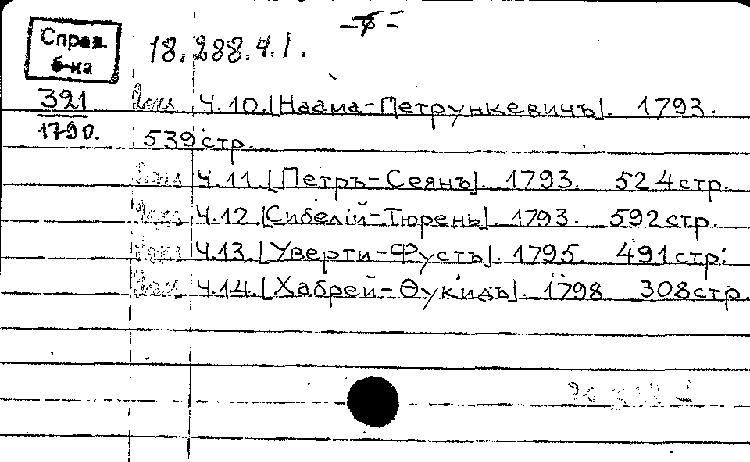 Справ.
б-ка
18.288.4.1.
— 7 —
321
1790.
Ч.10.[Наама-Петрункевичъ]. 1793.
539 стр.
Ч.11.[Петръ-Сеянъ]. 1793. 524 стр.
Ч.12.[Сибелій-Тюрень]. 1793. 592 стр.
Ч.13.[Уверти-Фустъ]. 1795. 491 стр.
Ч.14.[Хабрей-Ѳукидъ]. 1798 308 стр